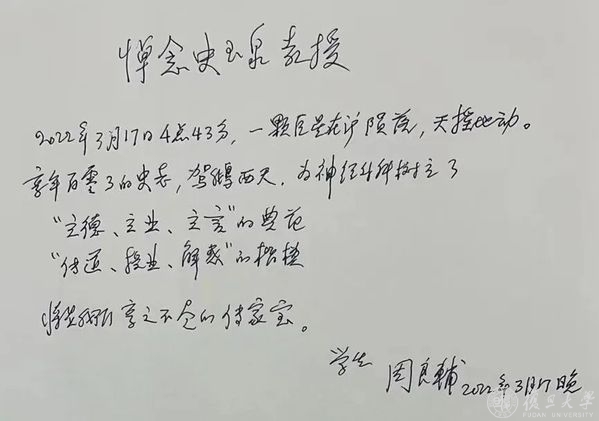 悼念史玉泉教授
2022年3月17日4点43分，一颗巨星在沪陨落，天摇地动。
享年百零3的史老，驾鹤西天，为神经外科树立了
“立德、立业、立言”的典范
“传道、授业、解惑”的楷模
将是我们享之不尽的传家宝。
学生 周良輔 2022年3月17晚
復旦大學
FUDAN UNIVERSITY